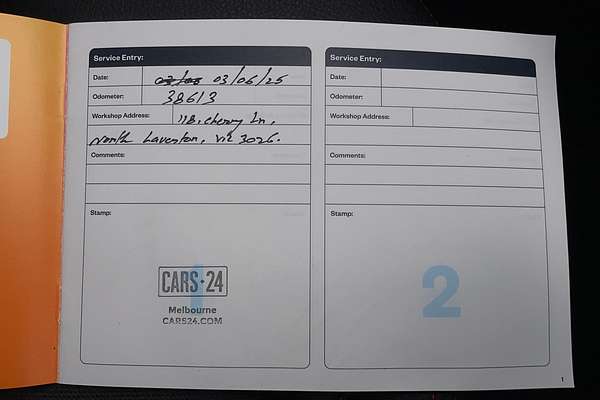 Service Entry:
Date: 03/06/25
Odometer: 38613
Workshop Address: 118, cherry Ln,
North Laverton, Vic 3026.
Comments:
Stamp:
1
CARS·24
Melbourne
CARS24.COM
Service Entry:
Date:
Odometer:
Workshop Address:
Comments:
Stamp:
2
1